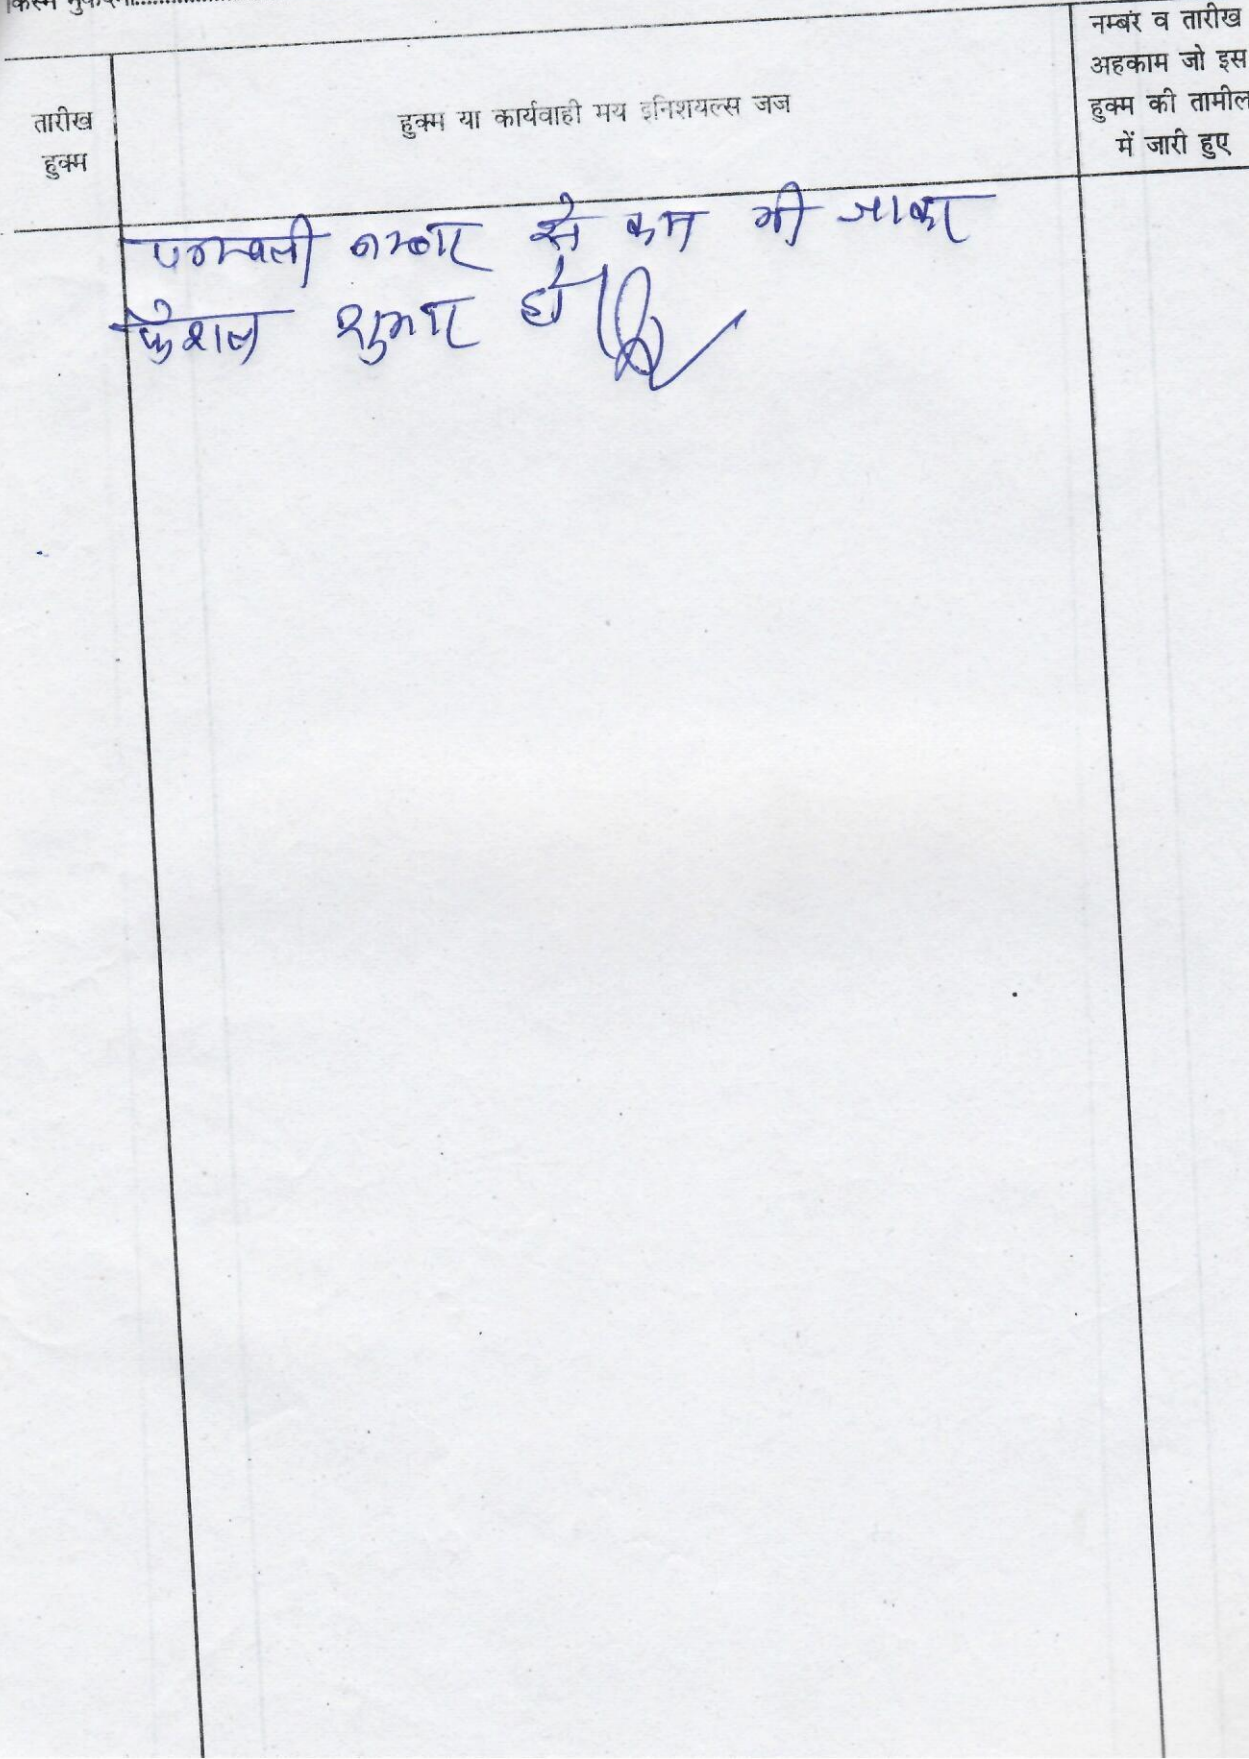 किस्म मुकदमा
तारीख
हुक्म
हुक्म या कार्यवाही मय इनिशयल्स जज
नम्बर व तारीख
अहकाम जो इस
हुक्म की तामील
में जारी हुए
पत्रावली नम्बर से कम की जाकर
फैशल शुमार हो